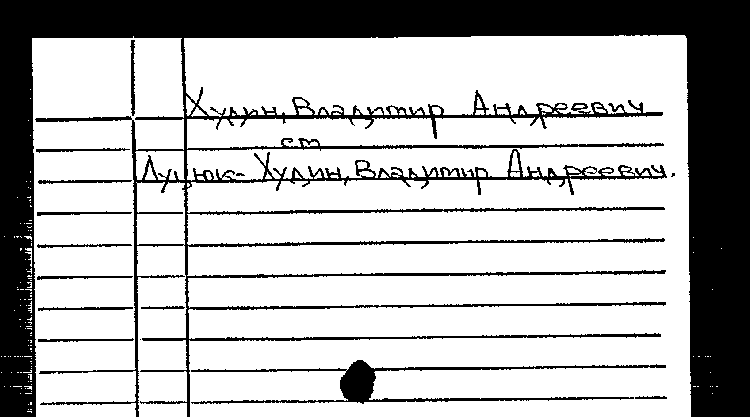 Худин, Владимир Андреевич
см
Луцюк-Худин, Владимир Андреевич.